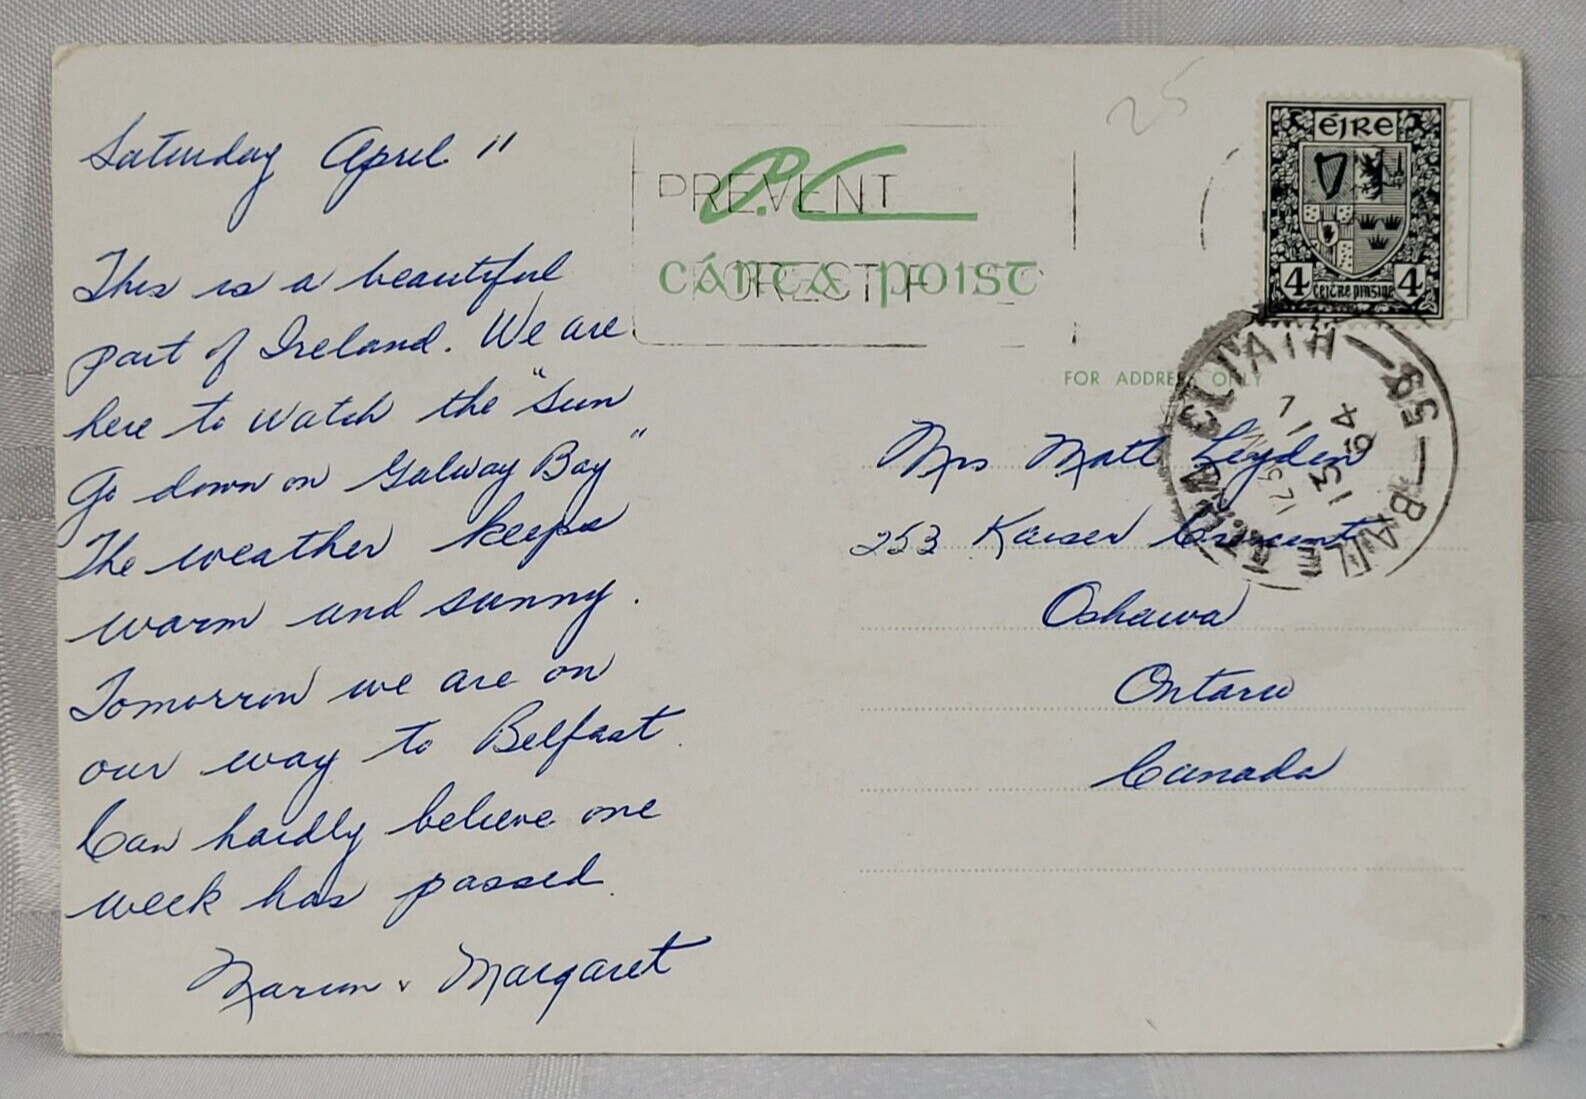 Saturday April 11
This is a beautiful
part of Ireland. We are
here to watch the "Sun
Go down on Galway Bay"
The weather keeps
warm and sunny.
Tomorrow we are on
our way to Belfast.
Can hardly believe one
week has passed.
Marion & Margaret
25
PREVENT
P.C.
CÁRTA POIST
FOR ADDRESS ONLY
ÉIRE
4 ceitre pinsine 4
BAILE ÁTHA CLIATH
Mrs Matt Leyden
253 Kaiser Crescent
Oshawa
Ontario
Canada